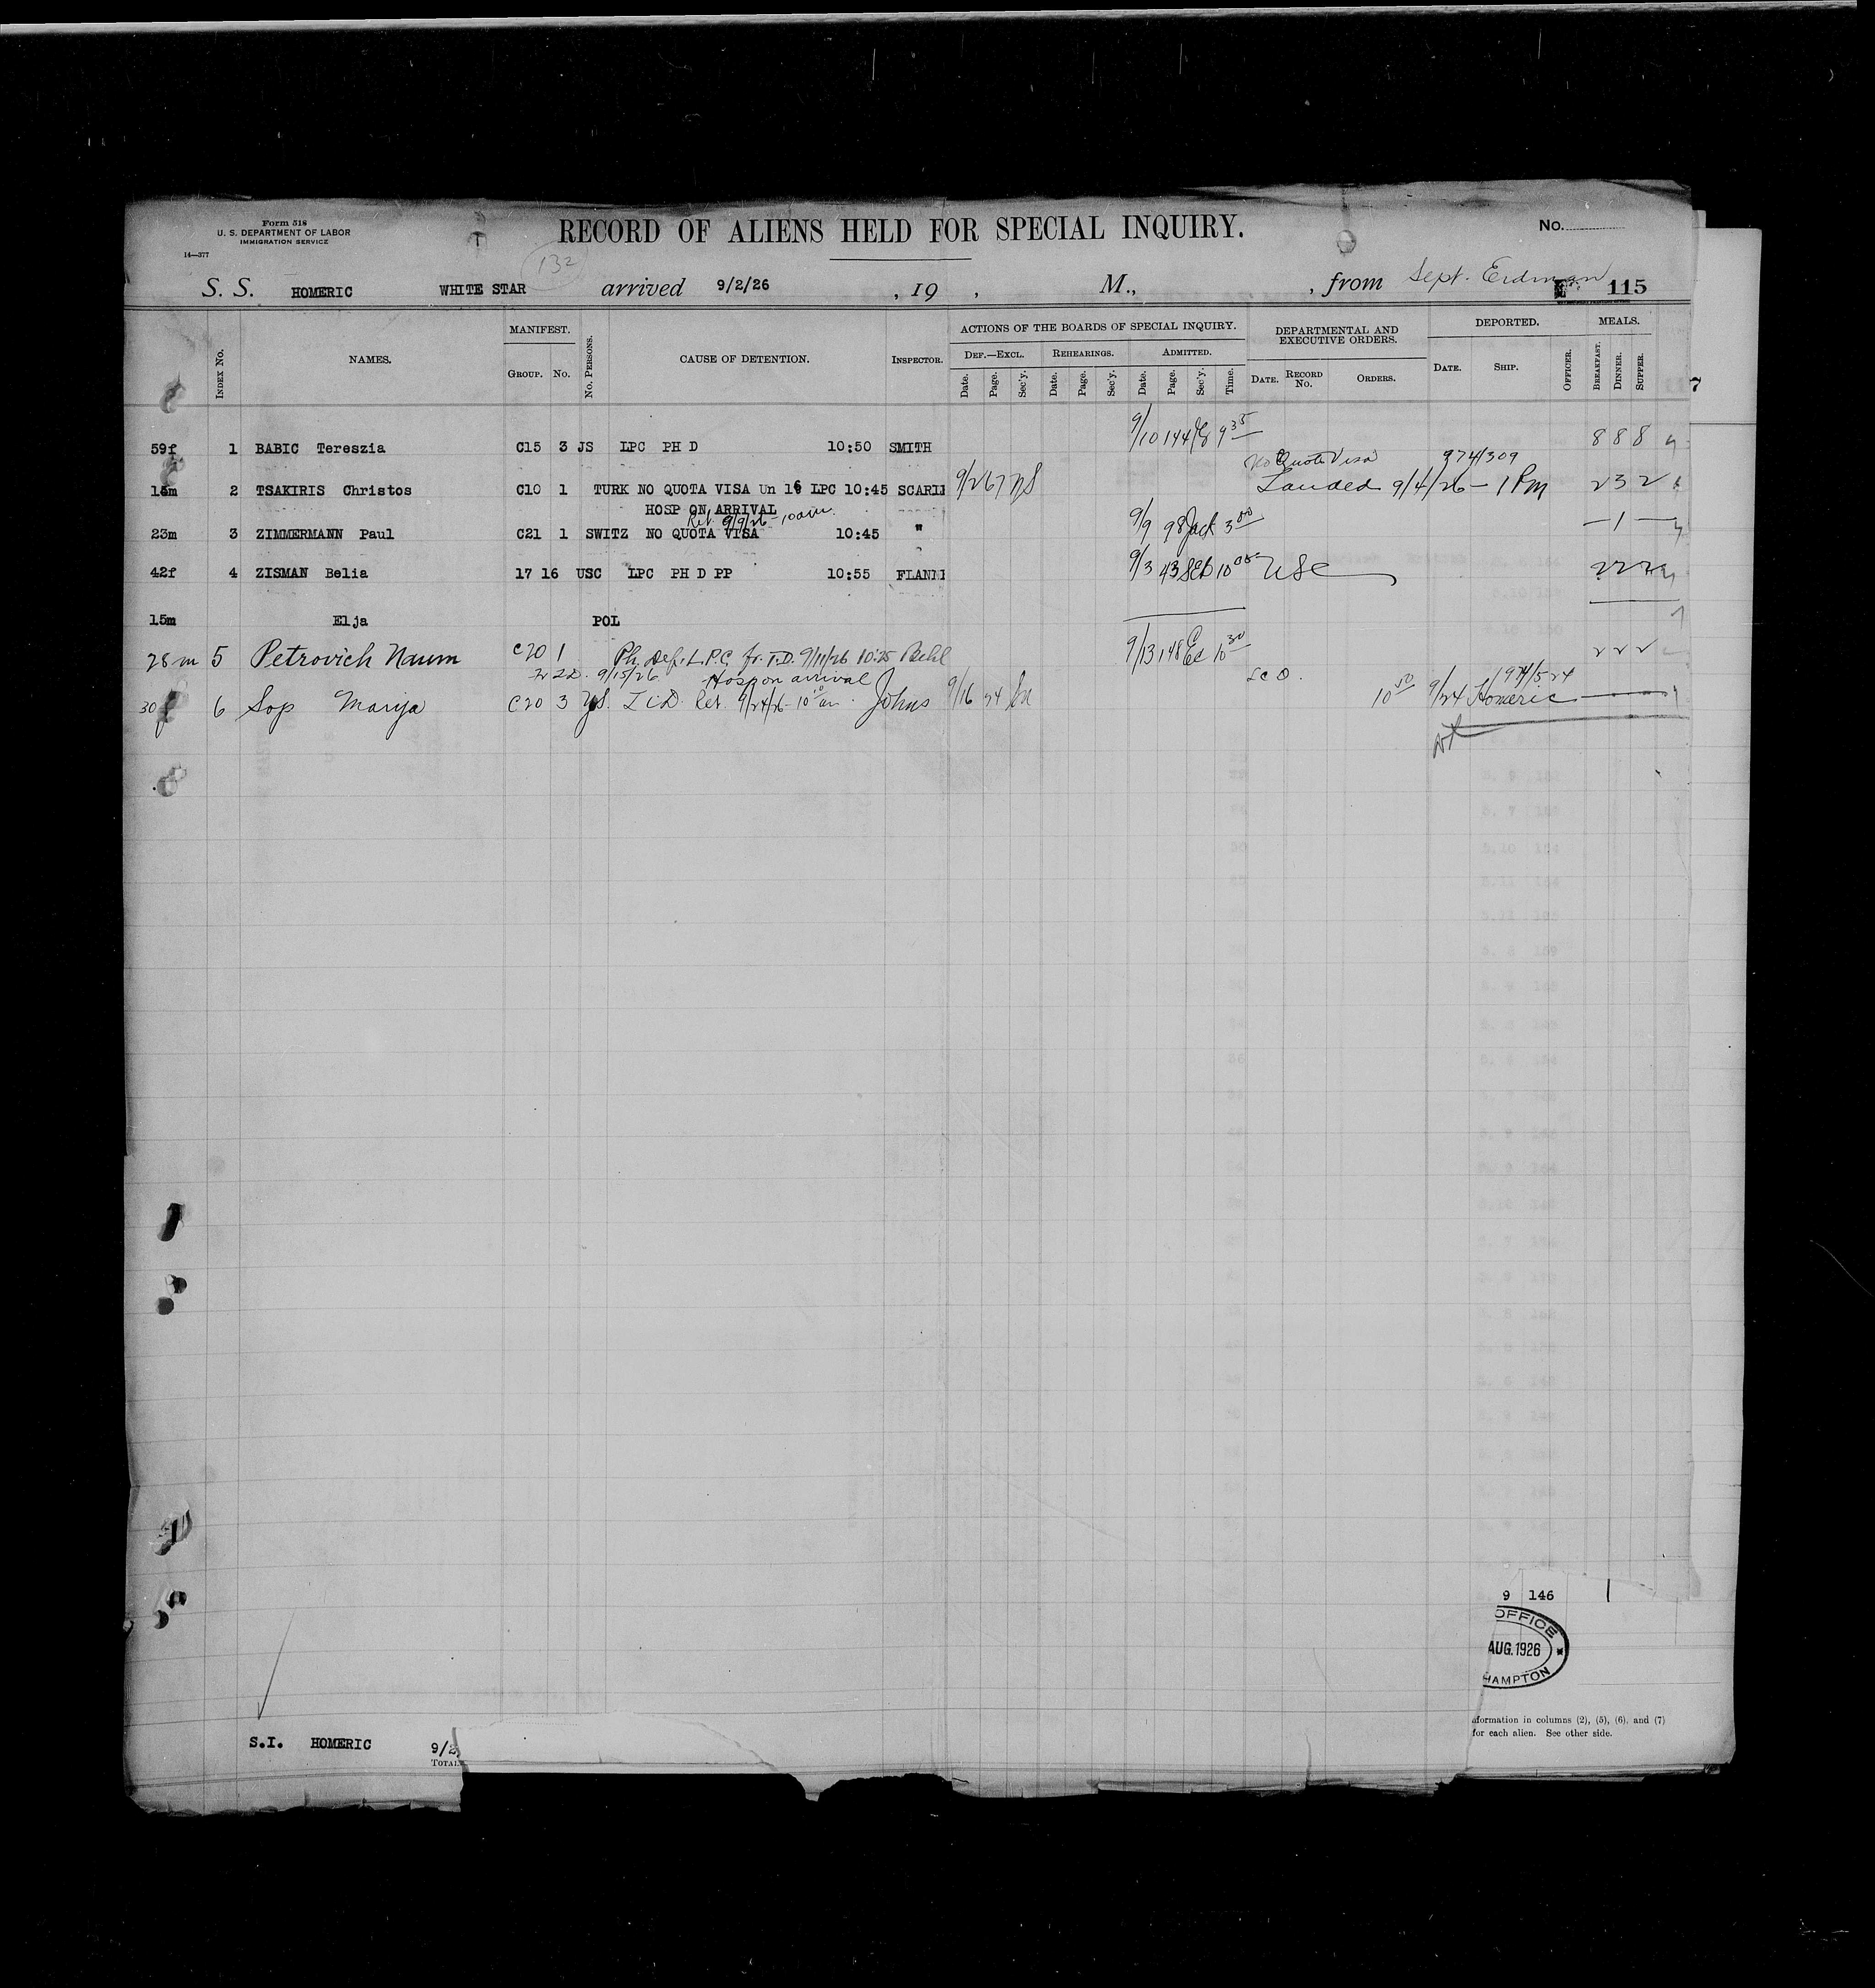 Form 518
U. S. DEPARTMENT OF LABOR
IMMIGRATION SERVICE
14—377
RECORD OF ALIENS HELD FOR SPECIAL INQUIRY.
No.
132
S. S. HOMERIC WHITE STAR arrived 9/2/26 , 19 , M., , from Sept. Erdman 115
INDEX No. NAMES. MANIFEST. GROUP. No. No. PERSONS. CAUSE OF DETENTION. INSPECTOR. ACTIONS OF THE BOARDS OF SPECIAL INQUIRY. DEF.—EXCL. REHEARINGS. ADMITTED. DEPARTMENTAL AND EXECUTIVE ORDERS. DEPORTED. MEALS.
Date. Page. Sec'y. Date. Page. Sec'y. Date. Page. Sec'y. Time. DATE. RECORD No. ORDERS. DATE. SHIP. OFFICER. BREAKFAST. DINNER. SUPPER.
7
59f 1 BABIC Tereszia C15 3 JS LPC PH D 10:50 SMITH 9/10 144 9 35 8 8 8
No Quota Visa 974/309
15m 2 TSAKIRIS Christos C10 1 TURK NO QUOTA VISA Un 16 LPC 10:45 SCARLI 9/2 67 Landed 9/4/26 — 1 Pm 2 3 2
HOSP ON ARRIVAL
Rel. 9/9/26 - 10 am.
23m 3 ZIMMERMANN Paul C21 1 SWITZ NO QUOTA VISA 10:45 " 9/9 98 Jack 3 00 — 1 —
42f 4 ZISMAN Belia 17 16 USC LPC PH D PP 10:55 FLANNE 9/3 43 10 USC 2 2 2
15m Elja POL
28m 5 Petrovich Naum C20 1 Ph. Def. L.P.C. fr. T.D. 9/11/26 10:25 9/13 148 10 30 2 2 2
9/15/26 Hosp on arrival
1974/524
30f 6 Sop Marija C20 3 LCD Rel. 9/24/26 - 10 am. Johns 9/16 24 10 50 9/24 Homeric
9 146
OFFICE
AUG. 1926
HAMPTON
formation in columns (2), (5), (6), and (7)
for each alien. See other side.
S.I. HOMERIC 9/2
TOTAL